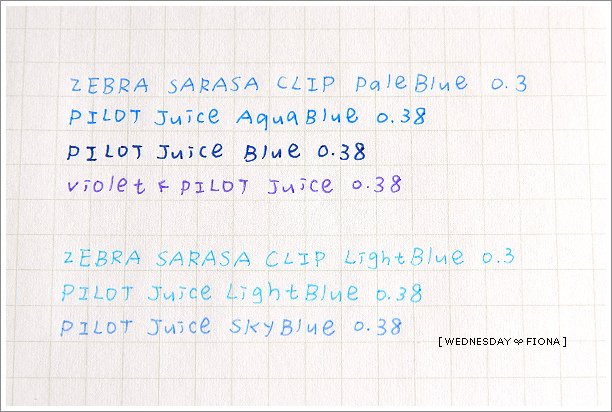 ZEBRA SARASA CLIP PaleBlue 0.3
PILOT Juice AquaBlue 0.38
PILOT Juice Blue 0.38
violet & PILOT Juice 0.38
ZEBRA SARASA CLIP LightBlue 0.3
PILOT Juice LightBlue 0.38
PILOT Juice SkyBlue 0.38
[WEDNESDAY FIONA]